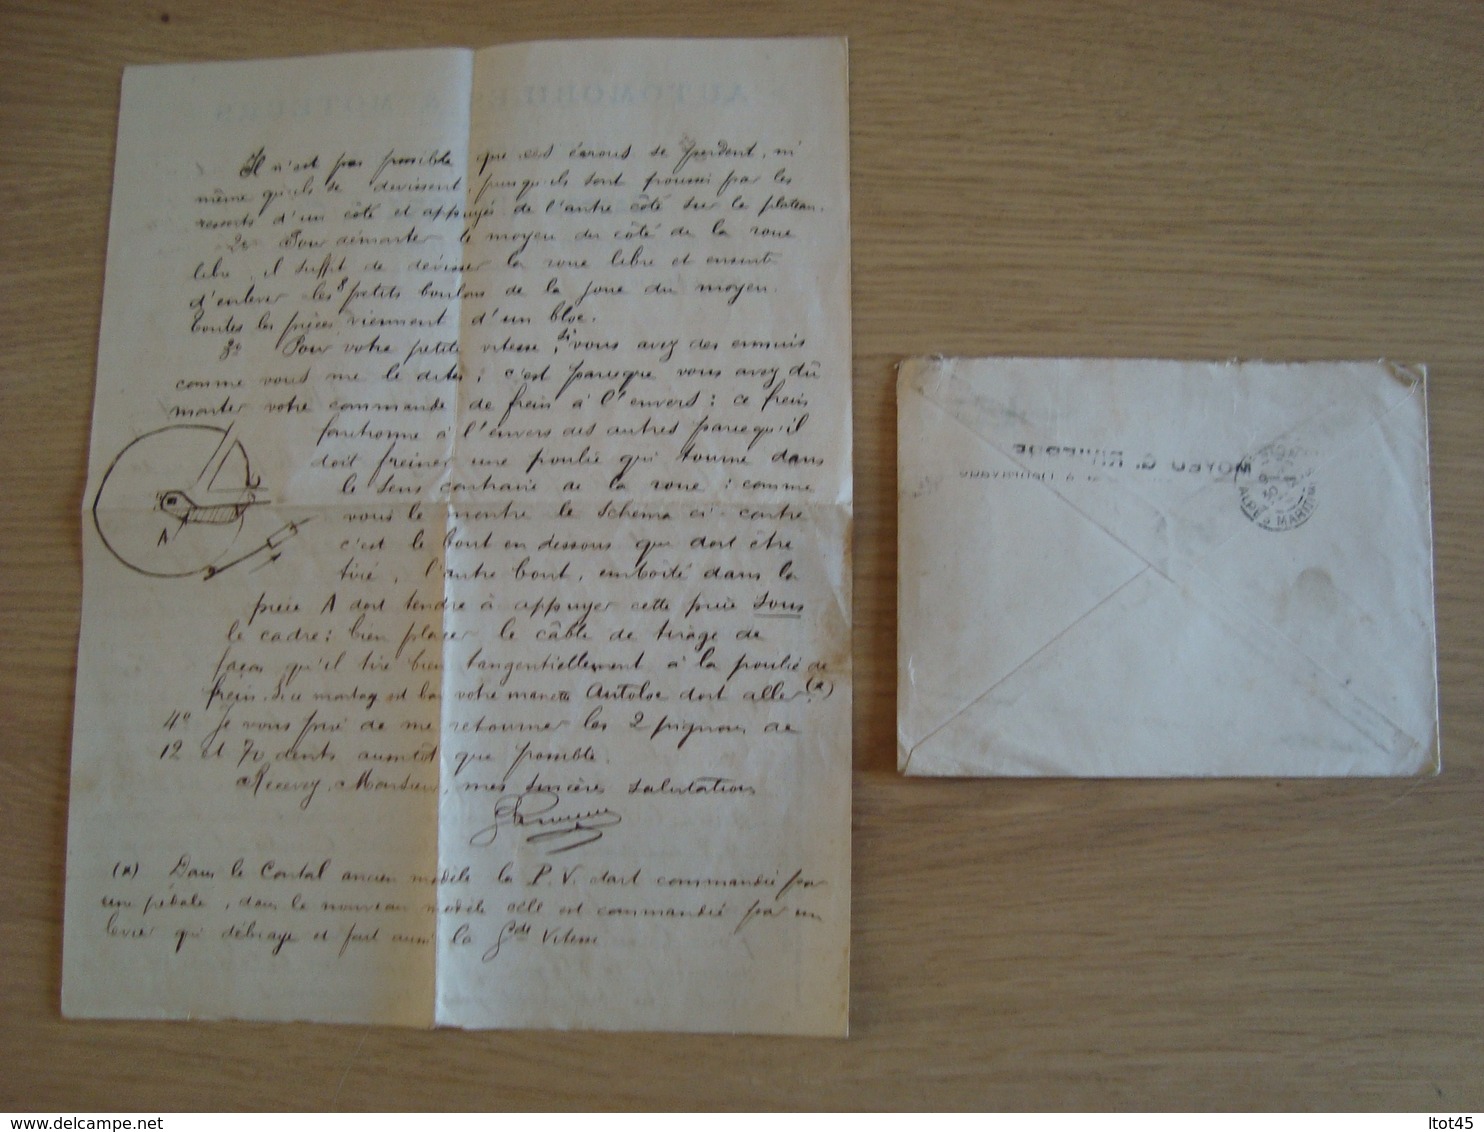 Il n'est pas possible que ces écrous se perdent, ni
même qu'ils se devissent, puisqu'ils sont poussés par les
ressorts d'un côté et appuyés de l'autre côté sur le plateau.
2° Pour démonter le moyeu du côté de la roue
libre, il suffit de dévisser la roue libre et ensuite
d'enlever les 8 petits boulons de la joue du moyeu.
Toutes les pièces viennent d'un bloc.
3° Pour votre petite vitesse, si vous avez des ennuis
comme vous me le dites, c'est parceque vous avez dû
monter votre commande de frein à l'envers : ce frein
fonctionne à l'envers des autres parcequ'il
doit freiner une poulie qui tourne dans
le sens contraire de la roue : comme
vous le montre le schéma ci-contre
c'est le bout en dessous qui doit être
tiré, l'autre bout, emboité dans la
pièce A doit tendre à appuyer cette pièce sous
le cadre : bien placer le câble de tirage de
façon qu'il tire bien tangentiellement à la poulie de
frein. Si ce montage est bon votre manette Autoloc doit aller (a)
4° Je vous prie de me retourner les 2 pignons de
12 et 70 dents aussitôt que possible.
Recevez, Monsieur, mes sincères salutations
A
(a) Dans le Contal ancien modèle la P.V. était commandée par
une pédale, dans le nouveau modèle elle est commandée par un
levier qui débraye et fait aussi la Gde Vitesse
AUTOMOBILES & MOTEURS
MOYEU G. RIVIERRE
à Débrayage
ALPES MARITIMES
ltot45